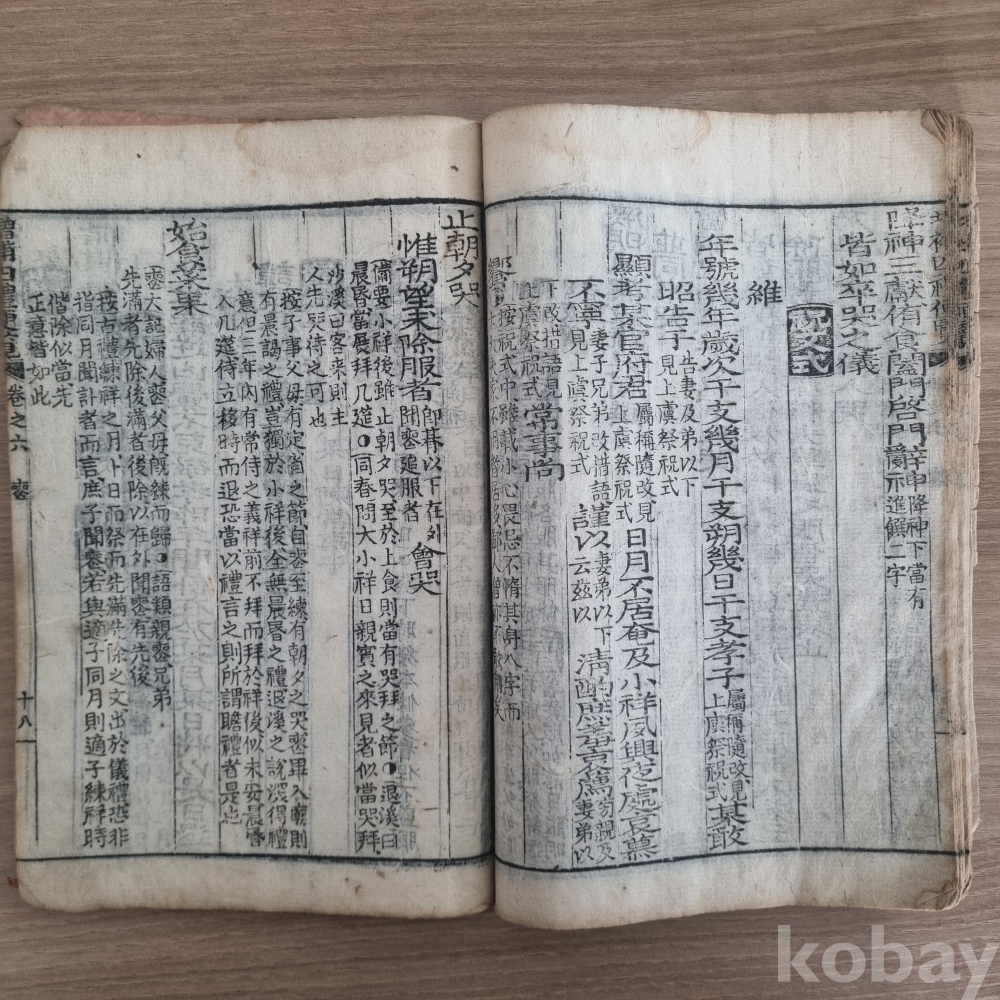 降神三獻侑食闔門啓門辭神
降神下當有
進饌二字
皆如卒哭之儀
祝文式
維
年號幾年歲次干支幾月干支朔幾日干支孝子
屬稱隨改見
上虞祭祝式
某敢
昭告于
告妻及弟以下
見上虞祭祝式
顯考某官府君
屬稱隨改見
上虞祭祝式
日月不居奄及小祥夙興夜處哀慕
不寧
妻子兄弟改措語
見上虞祭祝式
謹以
妻弟以下
云玆以
淸酌庶羞
哀薦
旁親及
妻弟以
下改措語見
上虞祭祝式
常事尙
饗
按祝式中
小心畏忌不惰其身八字而
止朝夕哭
惟朔望未除服者
卽朞以下在外
聞喪追服者
會哭
備要小祥後雖止朝夕哭至於上食則當有哭拜之節●退溪曰
晨昏當展拜几筵●同春問大小祥日親賓之來見者似當哭拜
沙溪曰客來則主
人先哭待之可也
按子事父母有定省之節自喪至練有朝夕之哭喪畢入廟則
有晨謁之禮豈獨於小祥後全無晨昏之禮退溪之說深得禮
意但三年內有常侍之義祥前不拜而拜於祥後似未安晨昏
入几筵侍立移時而退恐當以禮言之則所謂瞻禮者是也
始食菜果
喪大記婦人喪父母旣練而歸●語類親喪兄弟
先滿者先除後滿者後除以在外聞喪有先後
按古禮練祥之月卜日而祭而先滿先除之文出於儀禮恐非
指同月聞訃者而言庶子聞喪若與適子同月則適子練祥時
偕除似當先
正意皆如此
增補四禮便覽 卷之六 喪 十八